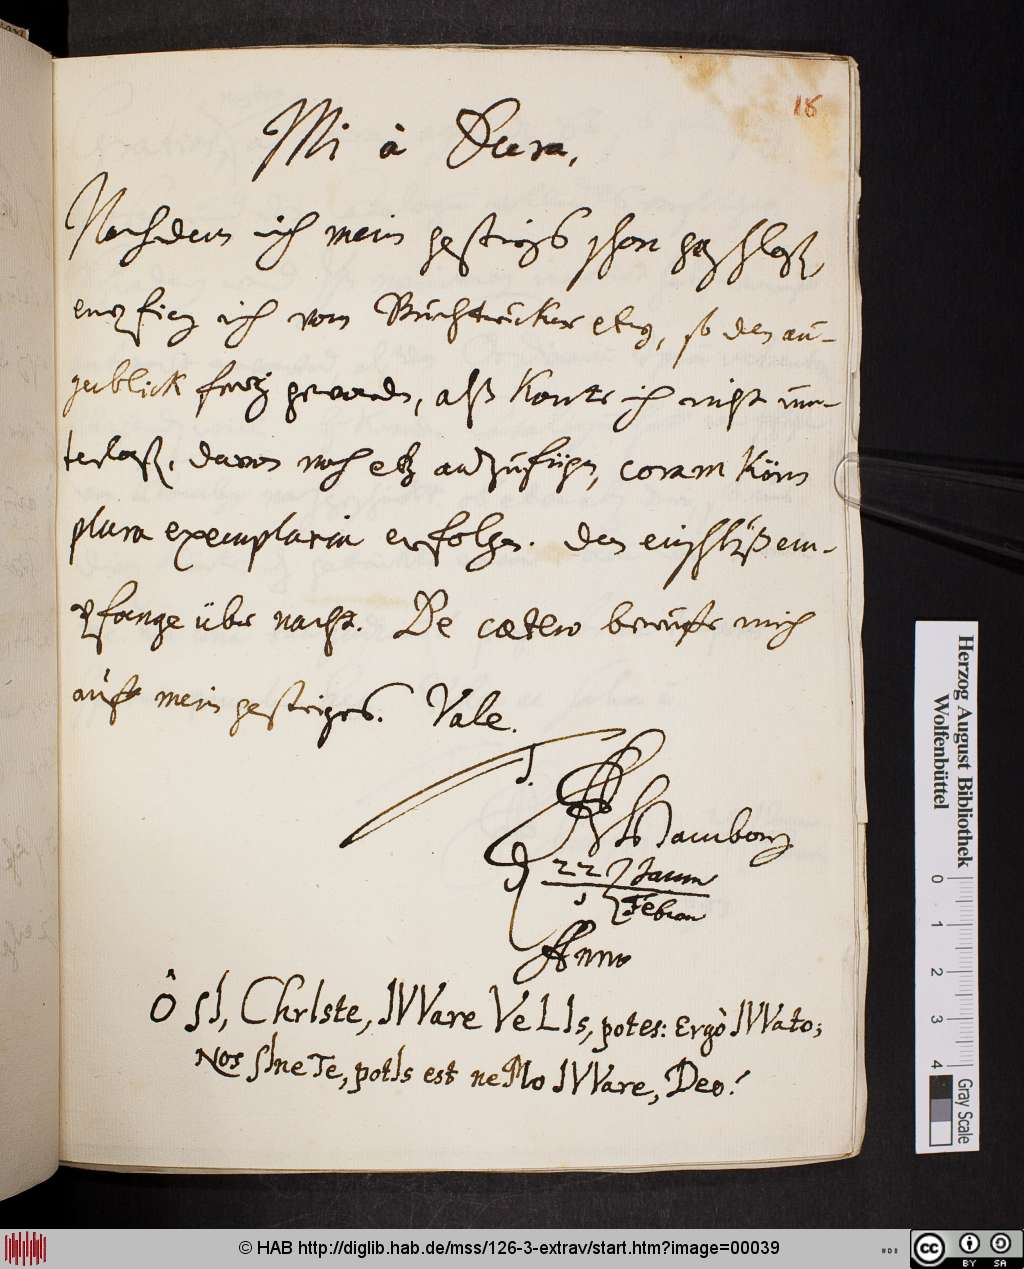 18
Mi à Dura,
Nachdem ich mein gestrigs schon geschloßen
empfieng ich vom Buchtrücker etwz, so den au-
genblick fertig geworden, alß Konte ich nicht un-
terlaßen, davon noch etwz anzufügen, coram Kön̄en
plura exemplaria erfolgen. den einschluß em-
pfange über nacht. De cætero beruffe mich
auff mein gestriges. Vale.
22 Januar
Februar
Anno
Ô sI, ChrIste, IVVare VeLIs, potes: Ergò IVVato;
Nos sIne Te, potIs est neMo IVVare, Deo!
Herzog August Bibliothek
Wolfenbüttel
0 1 2 3 4
Gray Scale
© HAB http://diglib.hab.de/mss/126-3-extrav/start.htm?image=00039
cc BY SA